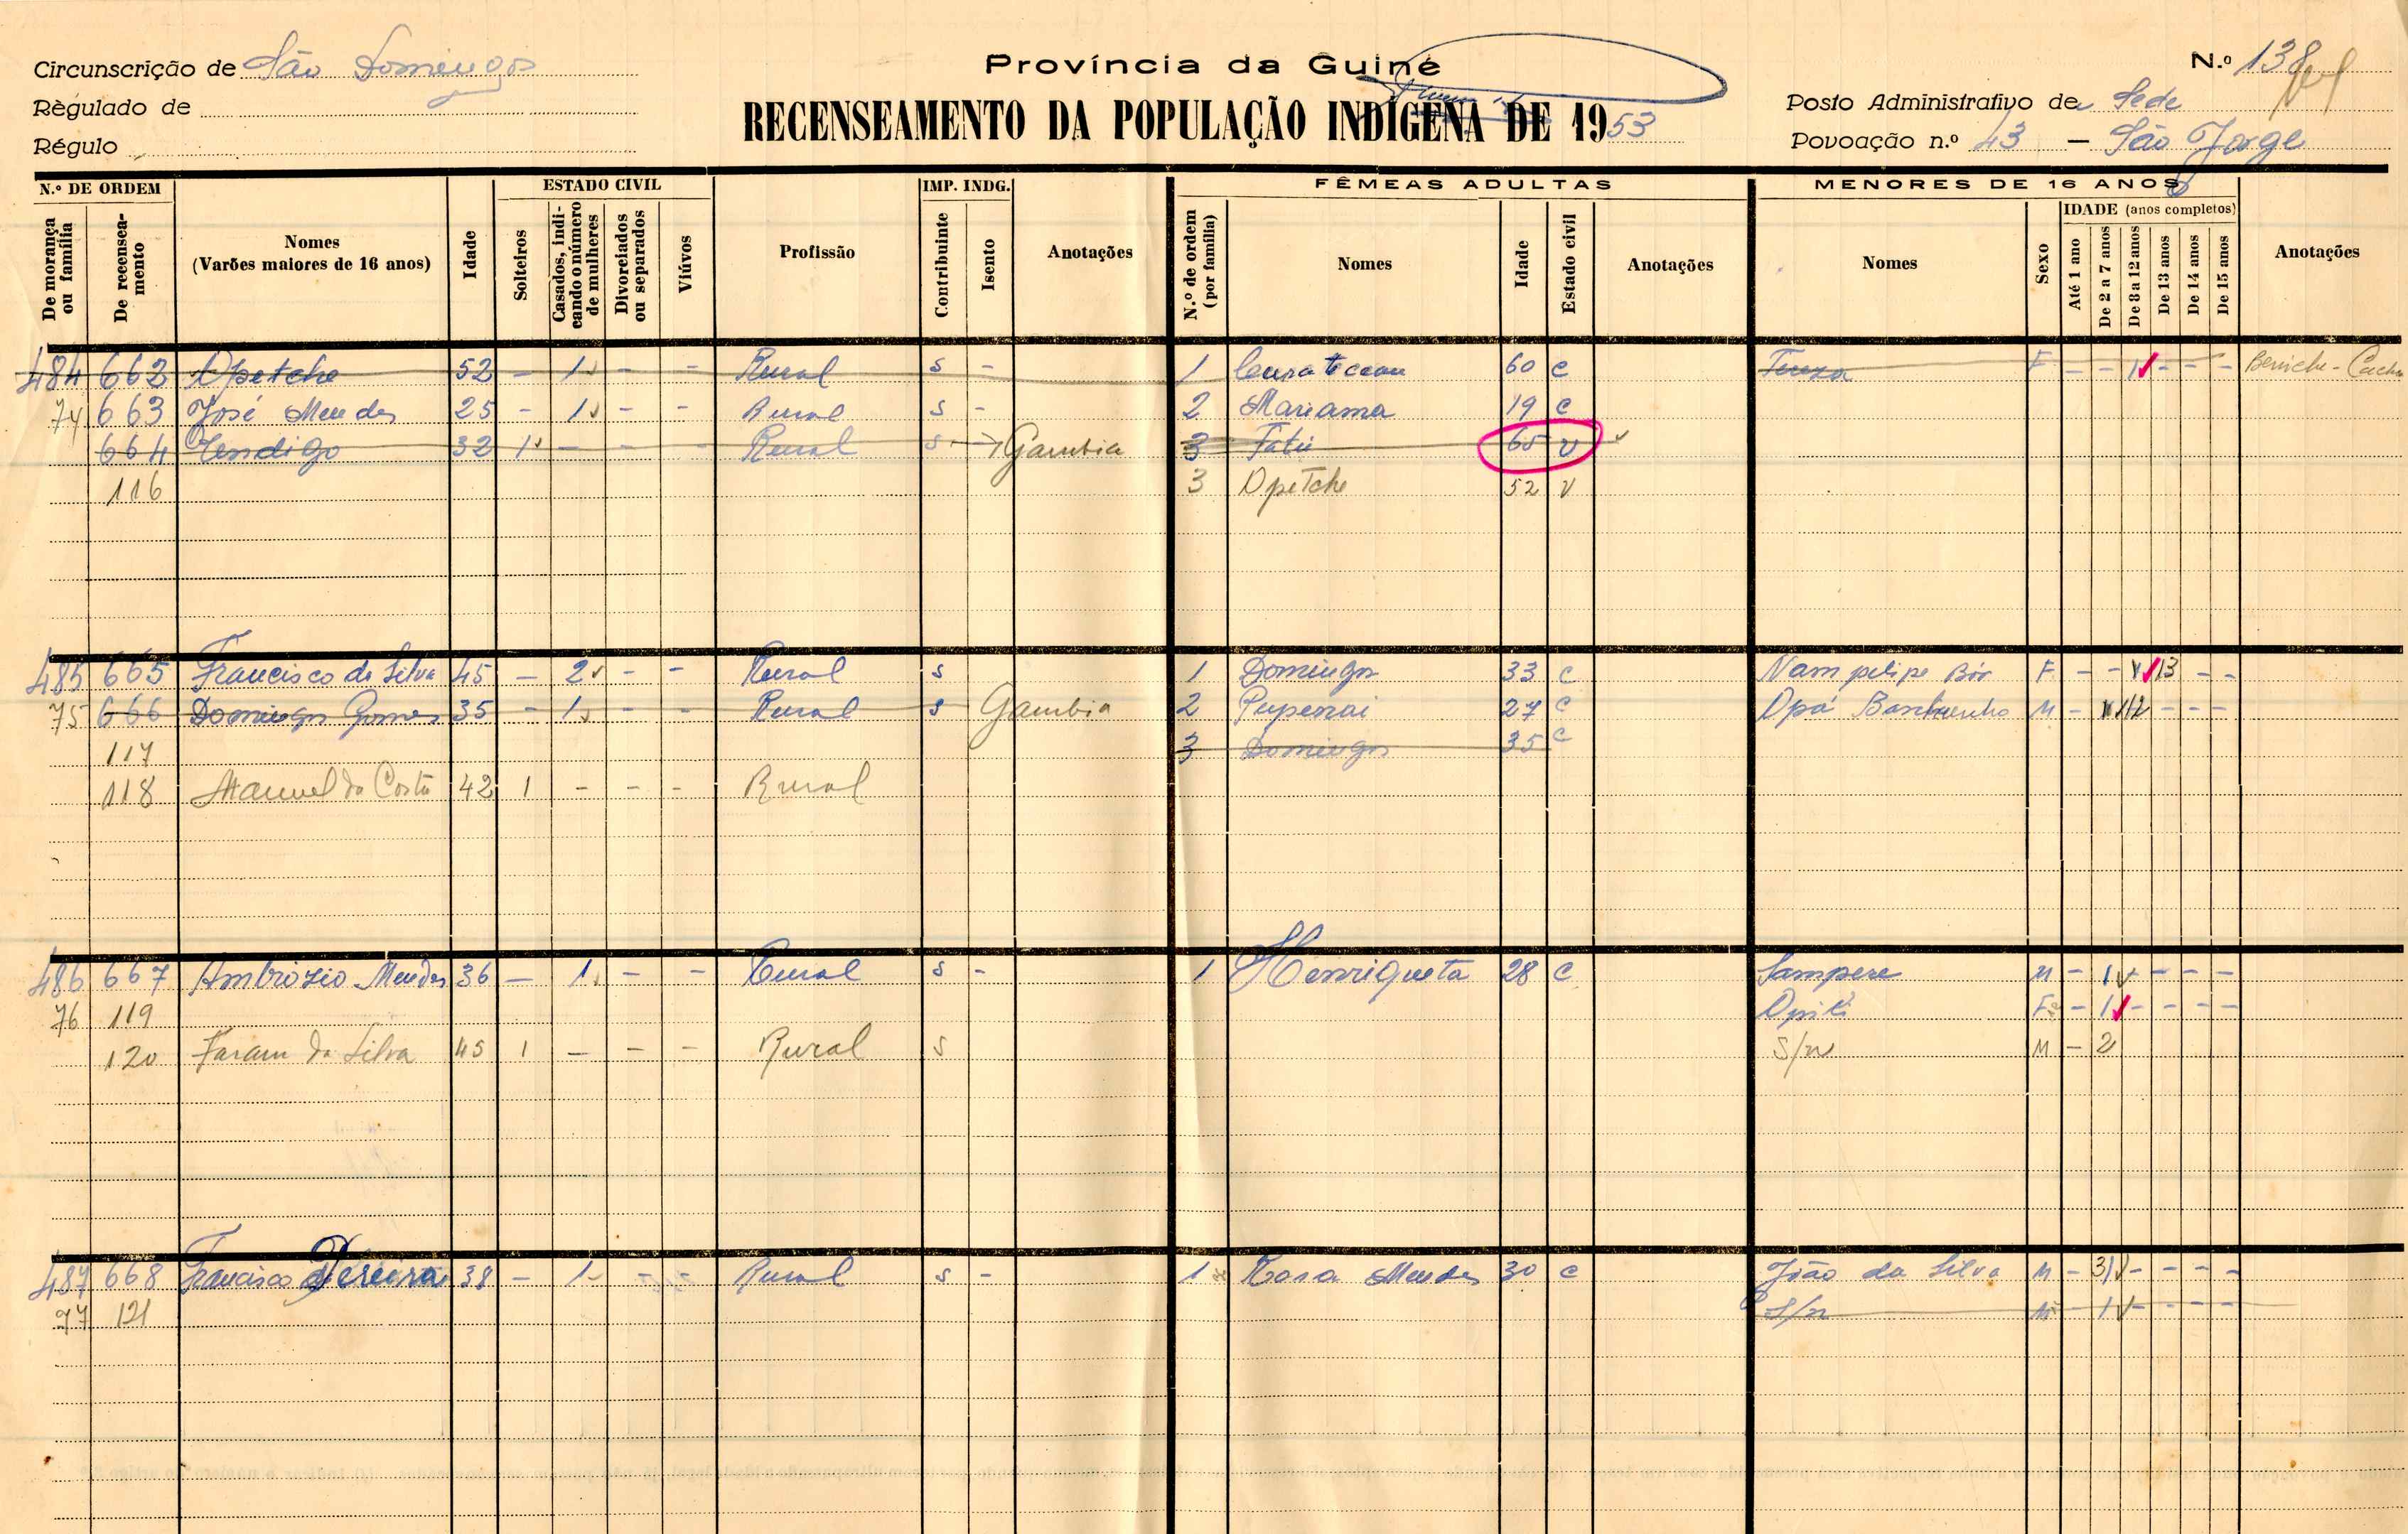 Circunscrição de São Domingos
Règulado de
Régulo
Província da Guiné
RECENSEAMENTO DA POPULAÇÃO INDÍGENA DE 1953
N.º 138
Posto Administrativo de Sede
Povoação n.º 43 - São Jorge
N.º DE ORDEM
De morança ou família
De recenseamento
Nomes
(Varões maiores de 16 anos)
Idade
ESTADO CIVIL
Solteiros
Casados, indicando o número de mulheres
Divorciados ou separados
Viúvos
Profissão
IMP. INDG.
Contribuinte
Isento
Anotações
FÊMEAS ADULTAS
N.º de ordem (por família)
Nomes
Idade
Estado civil
Anotações
MENORES DE 16 ANOS
Nomes
Sexo
IDADE (anos completos)
Até 1 ano
De 2 a 7 anos
De 8 a 12 anos
De 13 anos
De 14 anos
De 15 anos
Anotações
484 662 Opetche 52 - 1 - - Rural S - 1 60 C Tereza F - - 1 - - -
74 663 José Mendes 25 - 1 - - Rural S - 2 Mariama 19 C
664 32 1 - - - Rural S - Gambia 3 Fatú 65 V
116 3 Opetche 52 V
485 665 Francisco da Silva 45 - 2 - - Rural S 1 Domingas 33 C F - - 13 - -
75 666 Domingos Gomes 35 - 1 - - Rural S Gambia 2 Pupenai 27 C Opá M - 12 - - -
117 3 Domingas 35 C
118 Manuel da Costa 42 1 - - - Rural
486 667 Ambrozio Mendes 36 - 1 - - Rural S - 1 Henriqueta 28 C Sampere M - 1 - - - -
76 119 F - 1 - - - -
120 Faram da Silva 45 1 - - - Rural S S/n M - 2
487 668 Francisco Pereira 38 - 1 - - Rural S - 1 Rosa Mendes 30 C João da Silva M - 3 - - - -
77 121 S/n M 1 - - - -